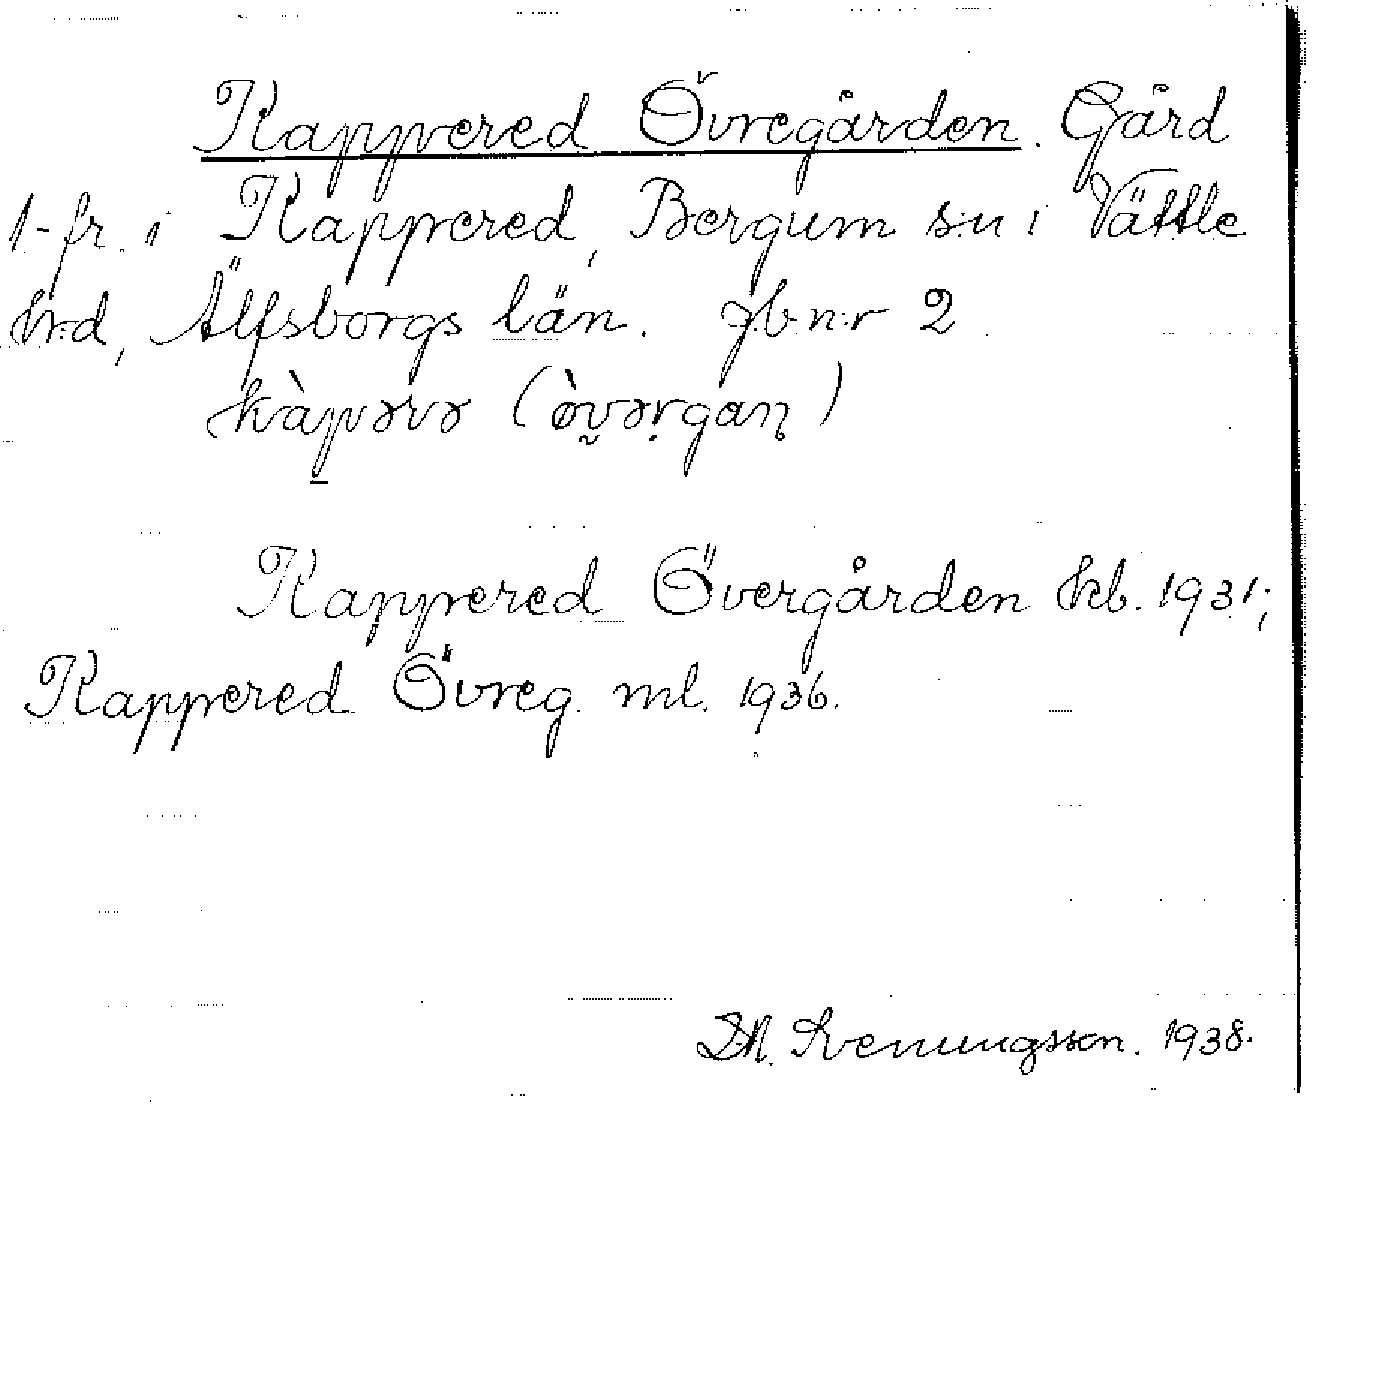 Kappered Övregården. Gård
1-fr. i Kappered, Bergum s:n i Vättle
h:d, Älfsborgs län. jb.n:r 2
kàpərə (òvərgaɳ)
Kappered Övergården kb. 1931;
Kappered Övreg. ml. 1936.
Svenungsson. 1938.